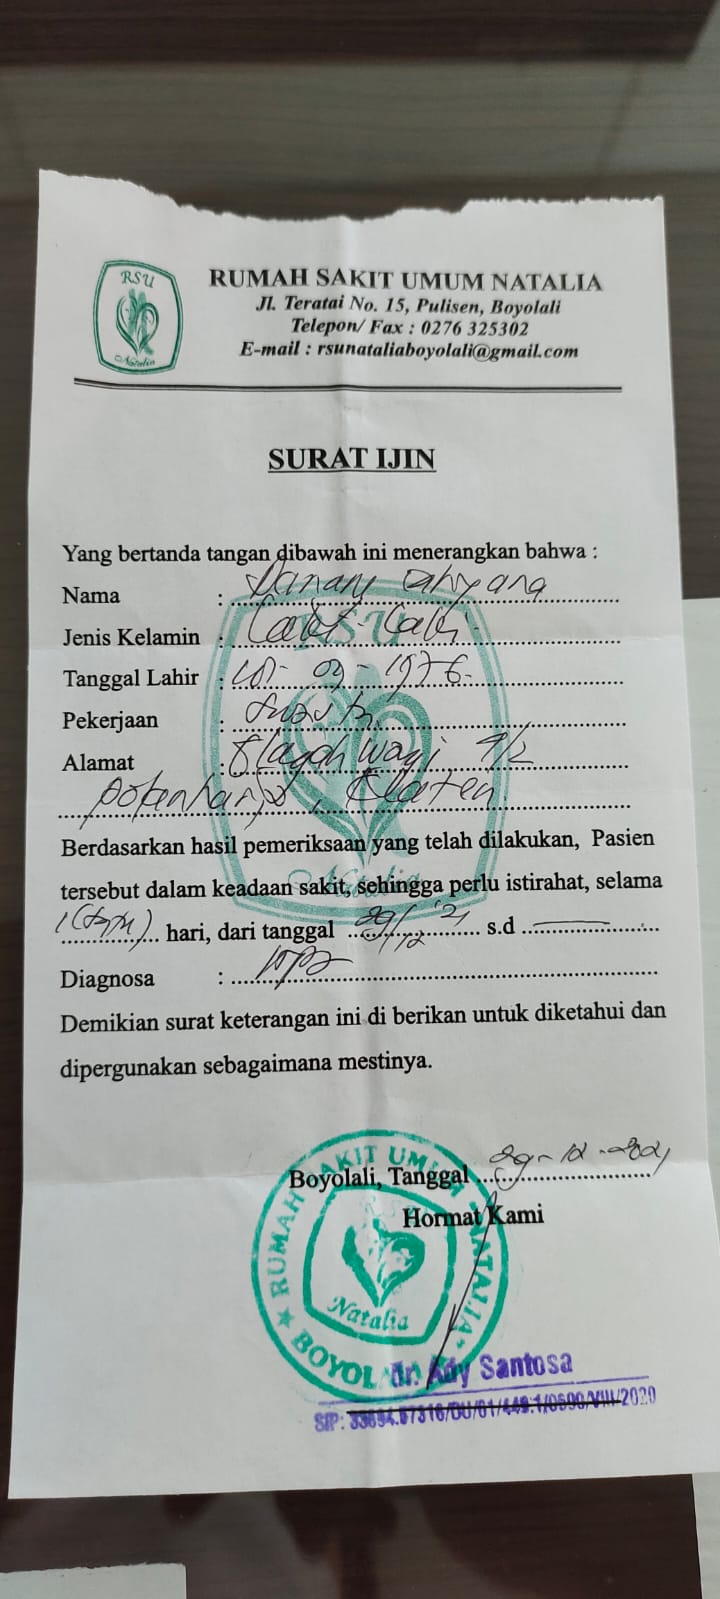 RSU
Natalia
RUMAH SAKIT UMUM NATALIA
Jl. Teratai No. 15, Pulisen, Boyolali
Telepon/ Fax : 0276 325302
E-mail : rsunataliaboyolali@gmail.com
SURAT IJIN
Yang bertanda tangan dibawah ini menerangkan bahwa :
Nama :
Jenis Kelamin : Laki-Laki
Tanggal Lahir : 03-1976
Pekerjaan :
Alamat :
Klaten
Berdasarkan hasil pemeriksaan yang telah dilakukan, Pasien
tersebut dalam keadaan sakit, sehingga perlu istirahat, selama
hari, dari tanggal 29/12 '21 s.d
Diagnosa :
Demikian surat keterangan ini di berikan untuk diketahui dan
dipergunakan sebagaimana mestinya.
Boyolali, Tanggal 29-12-2021
Hormat Kami
RUMAH SAKIT UMUM "NATALIA"
Natalia
BOYOLALI
dr. Ady Santosa
SIP: /2020